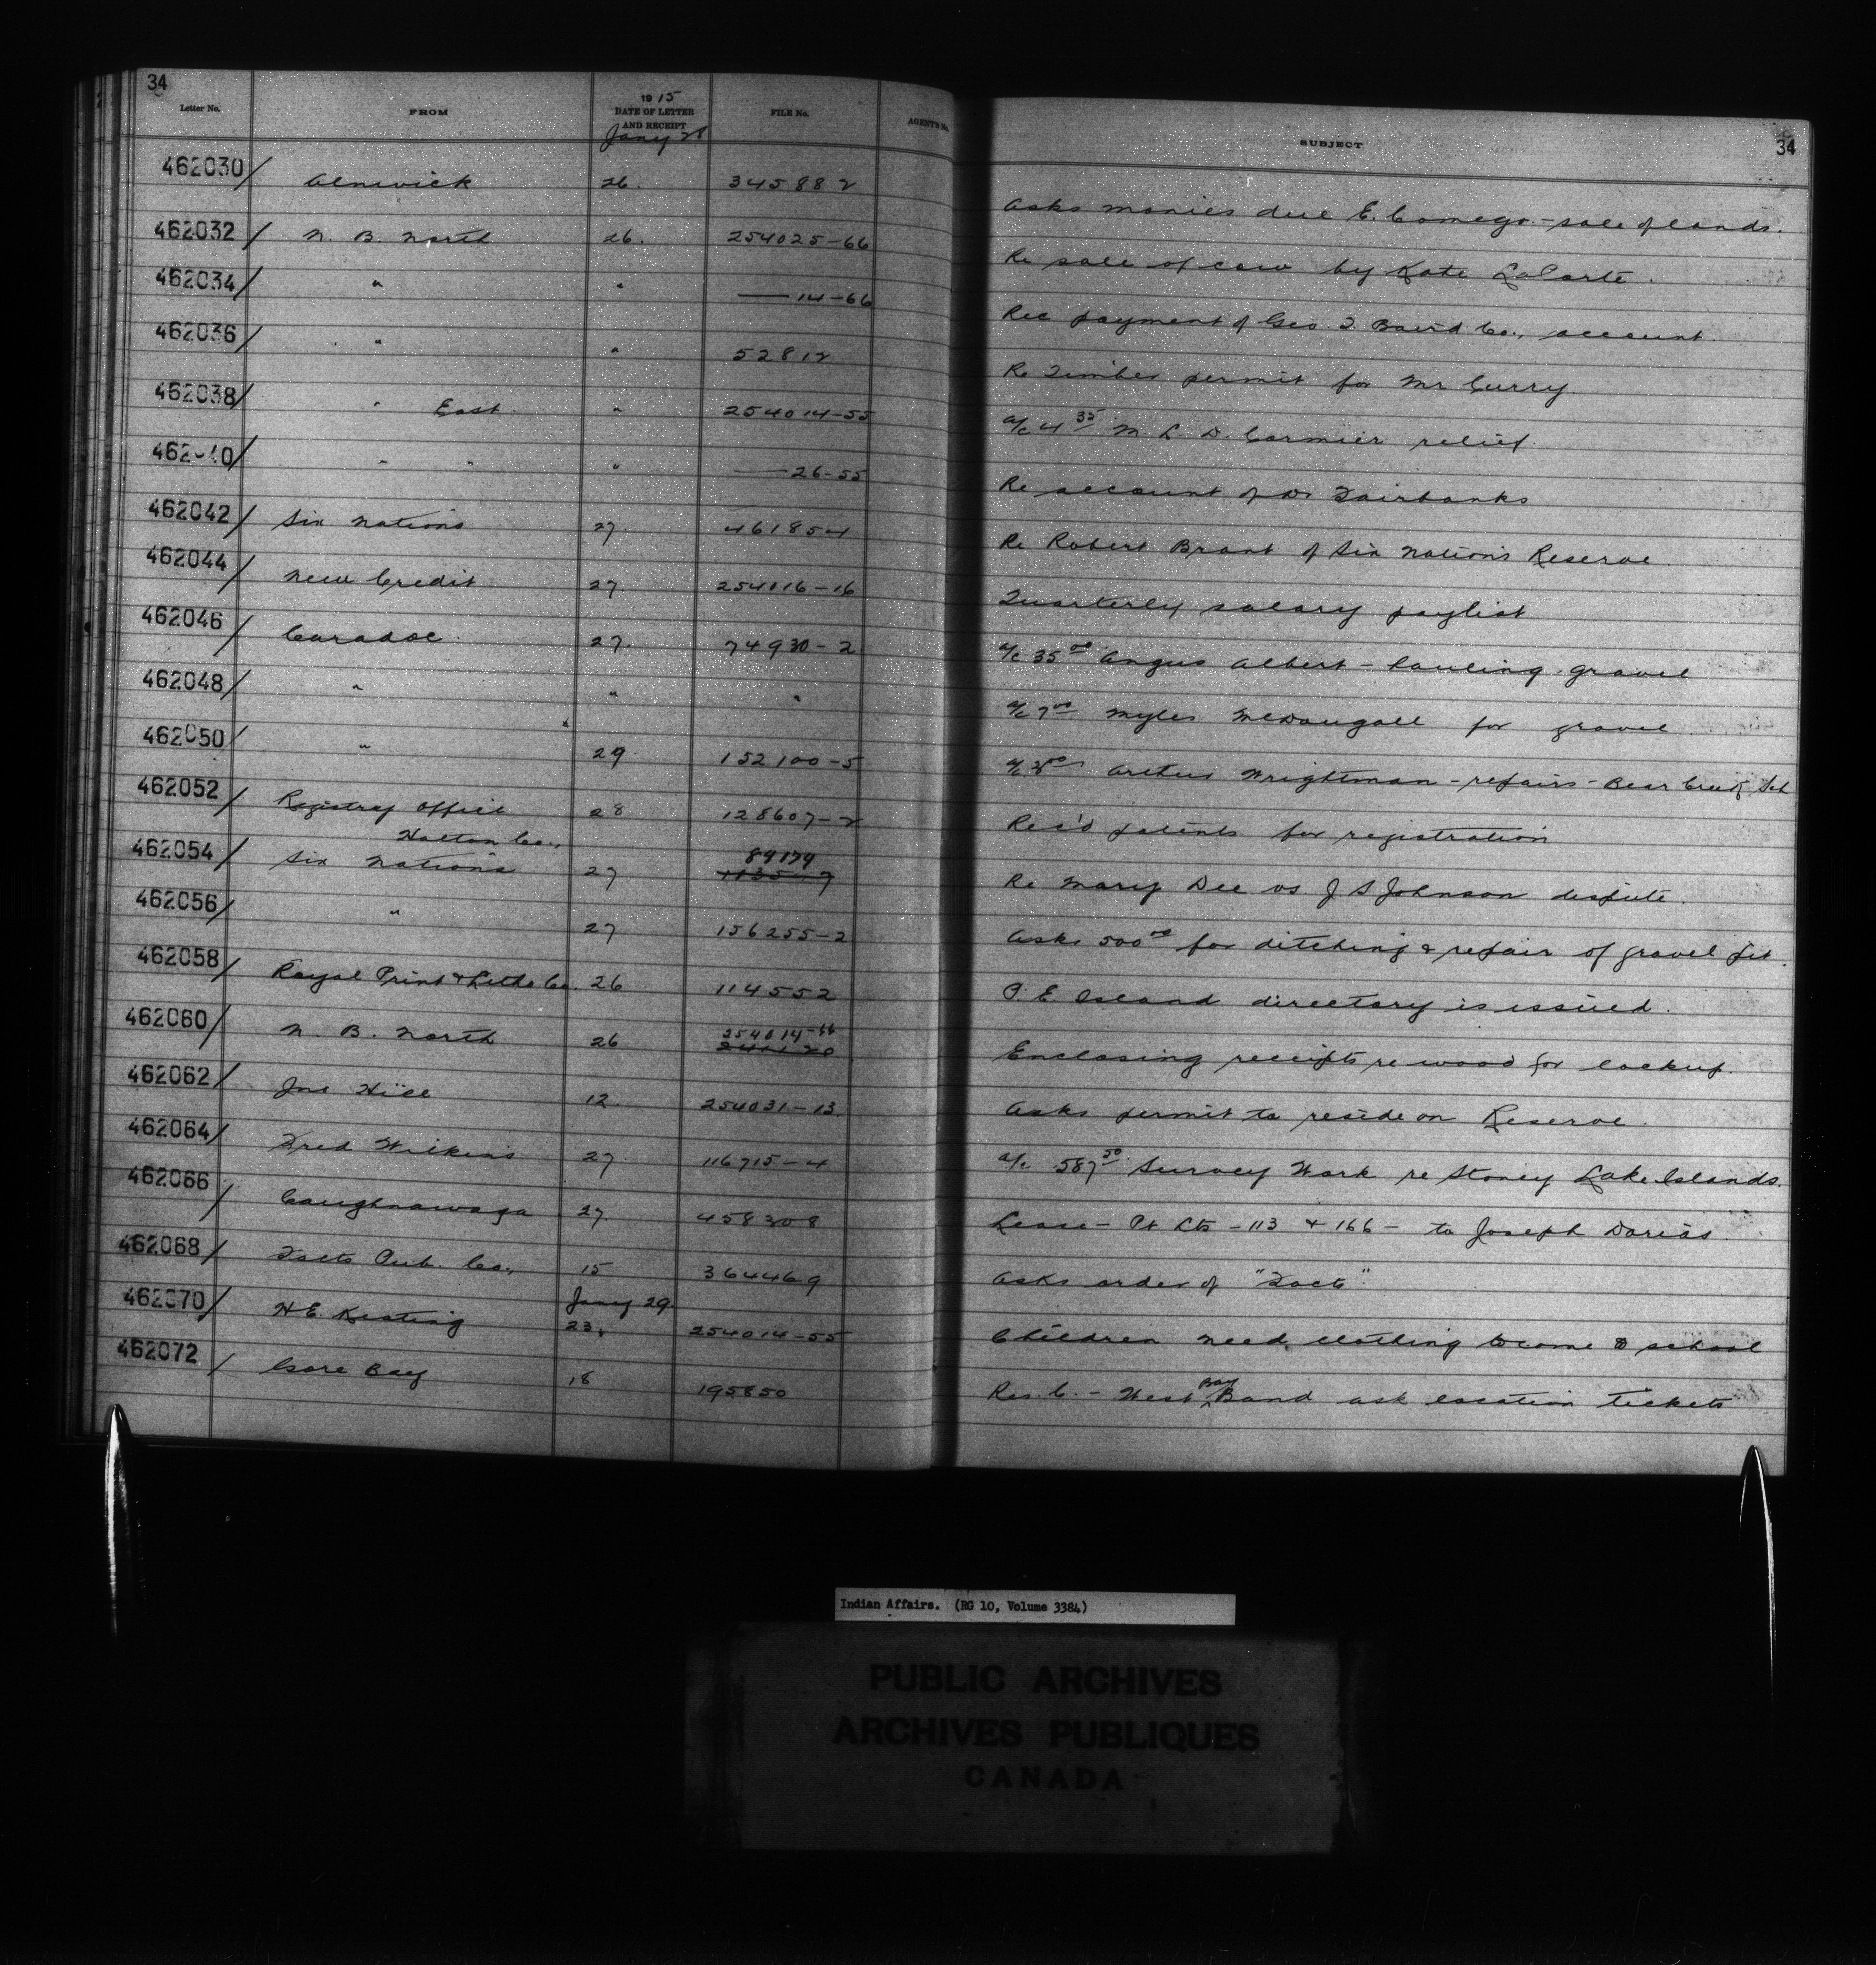 34
Letter No. FROM 1915 DATE OF LETTER AND RECEIPT FILE No. AGENT'S No. SUBJECT 34
Jany 28
462030/ Alnwick 26. 345882 Asks monies due E. Comego. - sale of lands.
462032/ N. B. North 26. 254025-66 Re sale of cow by Kate LaPorte.
462034/ " " — 14-66 Rec payment of Geo. T. Baird Co., account.
462036/ " " 52812 Re Timber permit for Mr Curry.
462038/ " East. " 254014-55 a/c 4 35 M. L. D. Cormier relief.
462040/ " " " — 26-55 Re account of Dr Fairbanks
462042/ Six Nations 27. 461854 Re Robert Brant of Six Nations Reserve.
462044/ New Credit 27. 254016-16 Quarterly salary paylist
462046/ Caradoc. 27. 74930-2 a/c 35 00 Angus Albert - hauling gravel
462048/ " " " a/c 7 00 Myles McDougall for gravel
462050/ " 29. 152100-5 a/c 00 Arthur Wrightman - repairs - Bear Creek Sch
462052/ Registry Office 28 128607-2 Rec'd patents for registration
Halton Co.,
462054/ Six Nations 27 89174 Re Mary Dee vs. J S Johnson dispute.
462056/ " 27 156255-2 Asks 500 00 for ditching & repair of gravel pit.
462058/ Royal Print & Litho Co. 26 114552 P. E. Island directory is issued.
462060/ N. B. North 26 254014-66 Enclosing receipts re wood for lockup.
462062/ Jno Hill 12. 254031-13. Asks permit to reside on Reserve.
462064/ Fred Wilkins 27. 116715-4 a/c 587 50 Survey Work re Stoney Lake Islands.
462066/ Caughnawaga 27. 458308 Lease - Pt Lts - 113 & 166 - to Joseph Dorias.
462068/ Facts Pub. Co., 15 364469 Asks order of "Facts".
Jany 29.
462070/ H E. Keating 23, 254014-55 Children need clothing to come to school
462072/ Gore Bay 18 195850 Res. C. - West Bay Band ask location tickets
Indian Affairs. (RG 10, Volume 3384)
PUBLIC ARCHIVES
ARCHIVES PUBLIQUES
CANADA